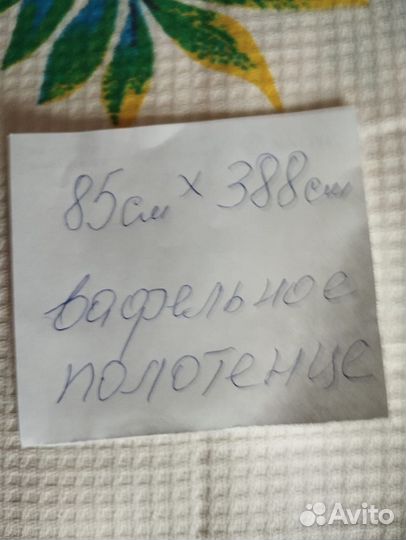 85см x 388см
вафельное
полотенце
Avito